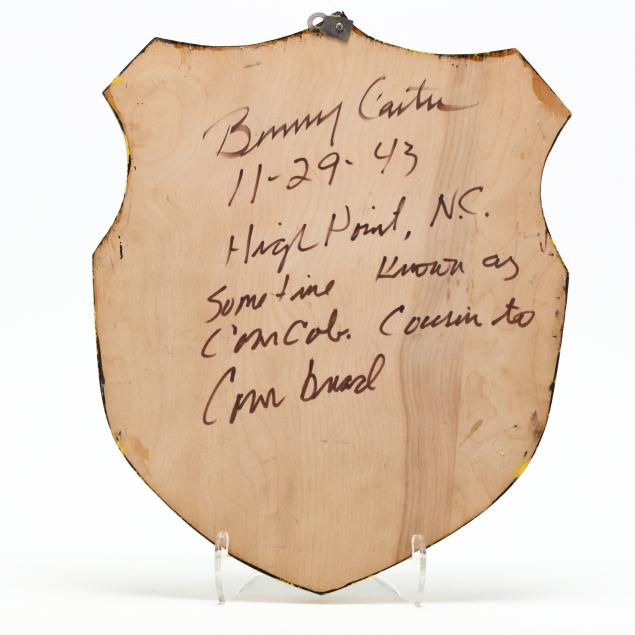 Benny Carter
11-29-43
High Point, N.C.
Sometime Known as
CornCob. Cousin to
Corn bread